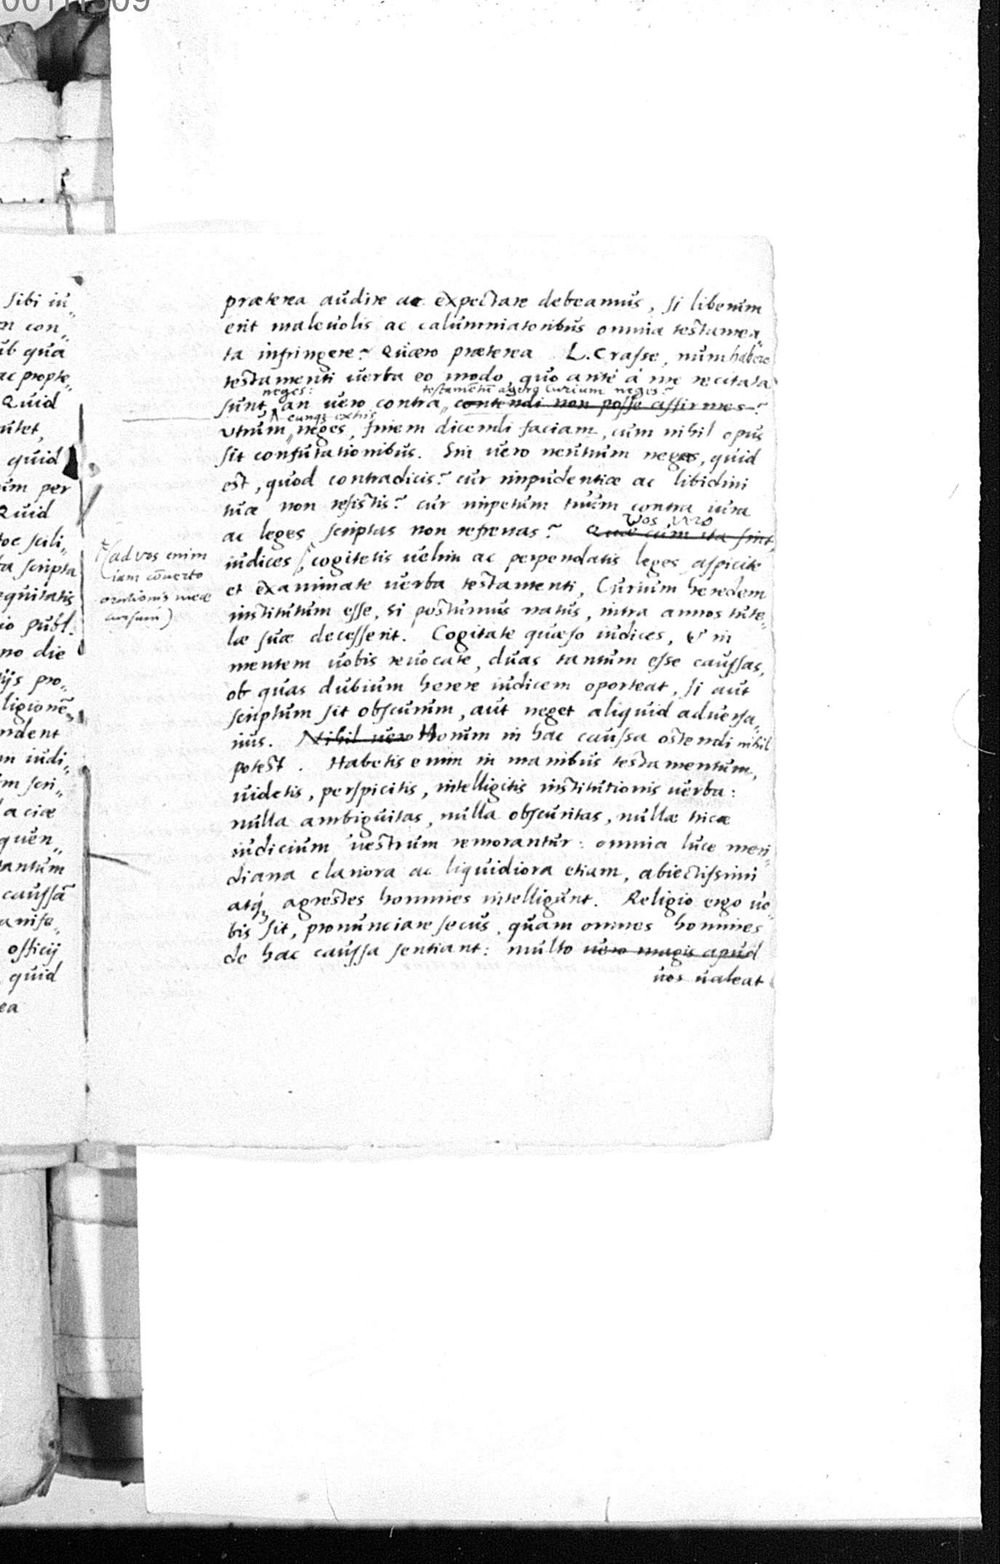 00111309
sibi iu„
m con„
ub qua
ac propte„
Quid
utet,
quid
um per
Quid
hoc scili„
ta scripta
equitatis
io publ.
no die
ijs pro„
ligionē„
ndent
m iudi„
m scri„
laciæ
quen„
tantum
caussā
anife„
officij
quid
ea
præterea audire ac expectare debeamus, si liberum
erit maleuolis ac calumniatoribus omnia testamen„
ta infringere? Quæro præterea L. Crasse, num habere
testamenti uerba eo modo, quo ante à me recitata
neges: testamentū agere Curium neges?
sunt, an uero contra, contendi non posse affirmes?
cunq; extris
Vtrum neges, finem dicendi faciam, cum nihil opus
sit confutationibus. Sin uero neutrum neges, quid
est, quod contradicis? cur impudentiæ ac libidini
tuæ non resistis? cur impetum tuum contra iura
Vos uero
ac leges scriptas non refrenas? Quæ cum ita sint,
(ad vos enim
iam cōuerto
orationis meæ
cursum)
iudices cogitetis uelim ac perpendatis leges aspicite
et examinate uerba testamenti, Curium heredem
institutum esse, si postumus natus, intra annos tute„
læ suæ decesserit. Cogitate quæso iudices, & in
mentem uobis reuocate, duas tantum esse caussas,
ob quas dubium herere iudicem oporteat, si aut
scriptum sit obscurum, aut neget aliquid aduersa„
rius. Nihil uero Horum in hac caussa ostendi nihil
potest. Habetis enim in manibus testamentum,
uidetis, perspicitis, intelligitis institutionis uerba:
nulla ambiguitas, nulla obscuritas, nullæ tricæ
iudicium uestrum remorantur: omnia luce meri„
diana clariora ac liquidiora etiam, abiectissimi
atq; agrestes homines intelligunt. Religio ergo uo„
bis sit, pronunciare secus, quam omnes homines
de hac caussa sentiant: multo uero magis apud
uos ualeat